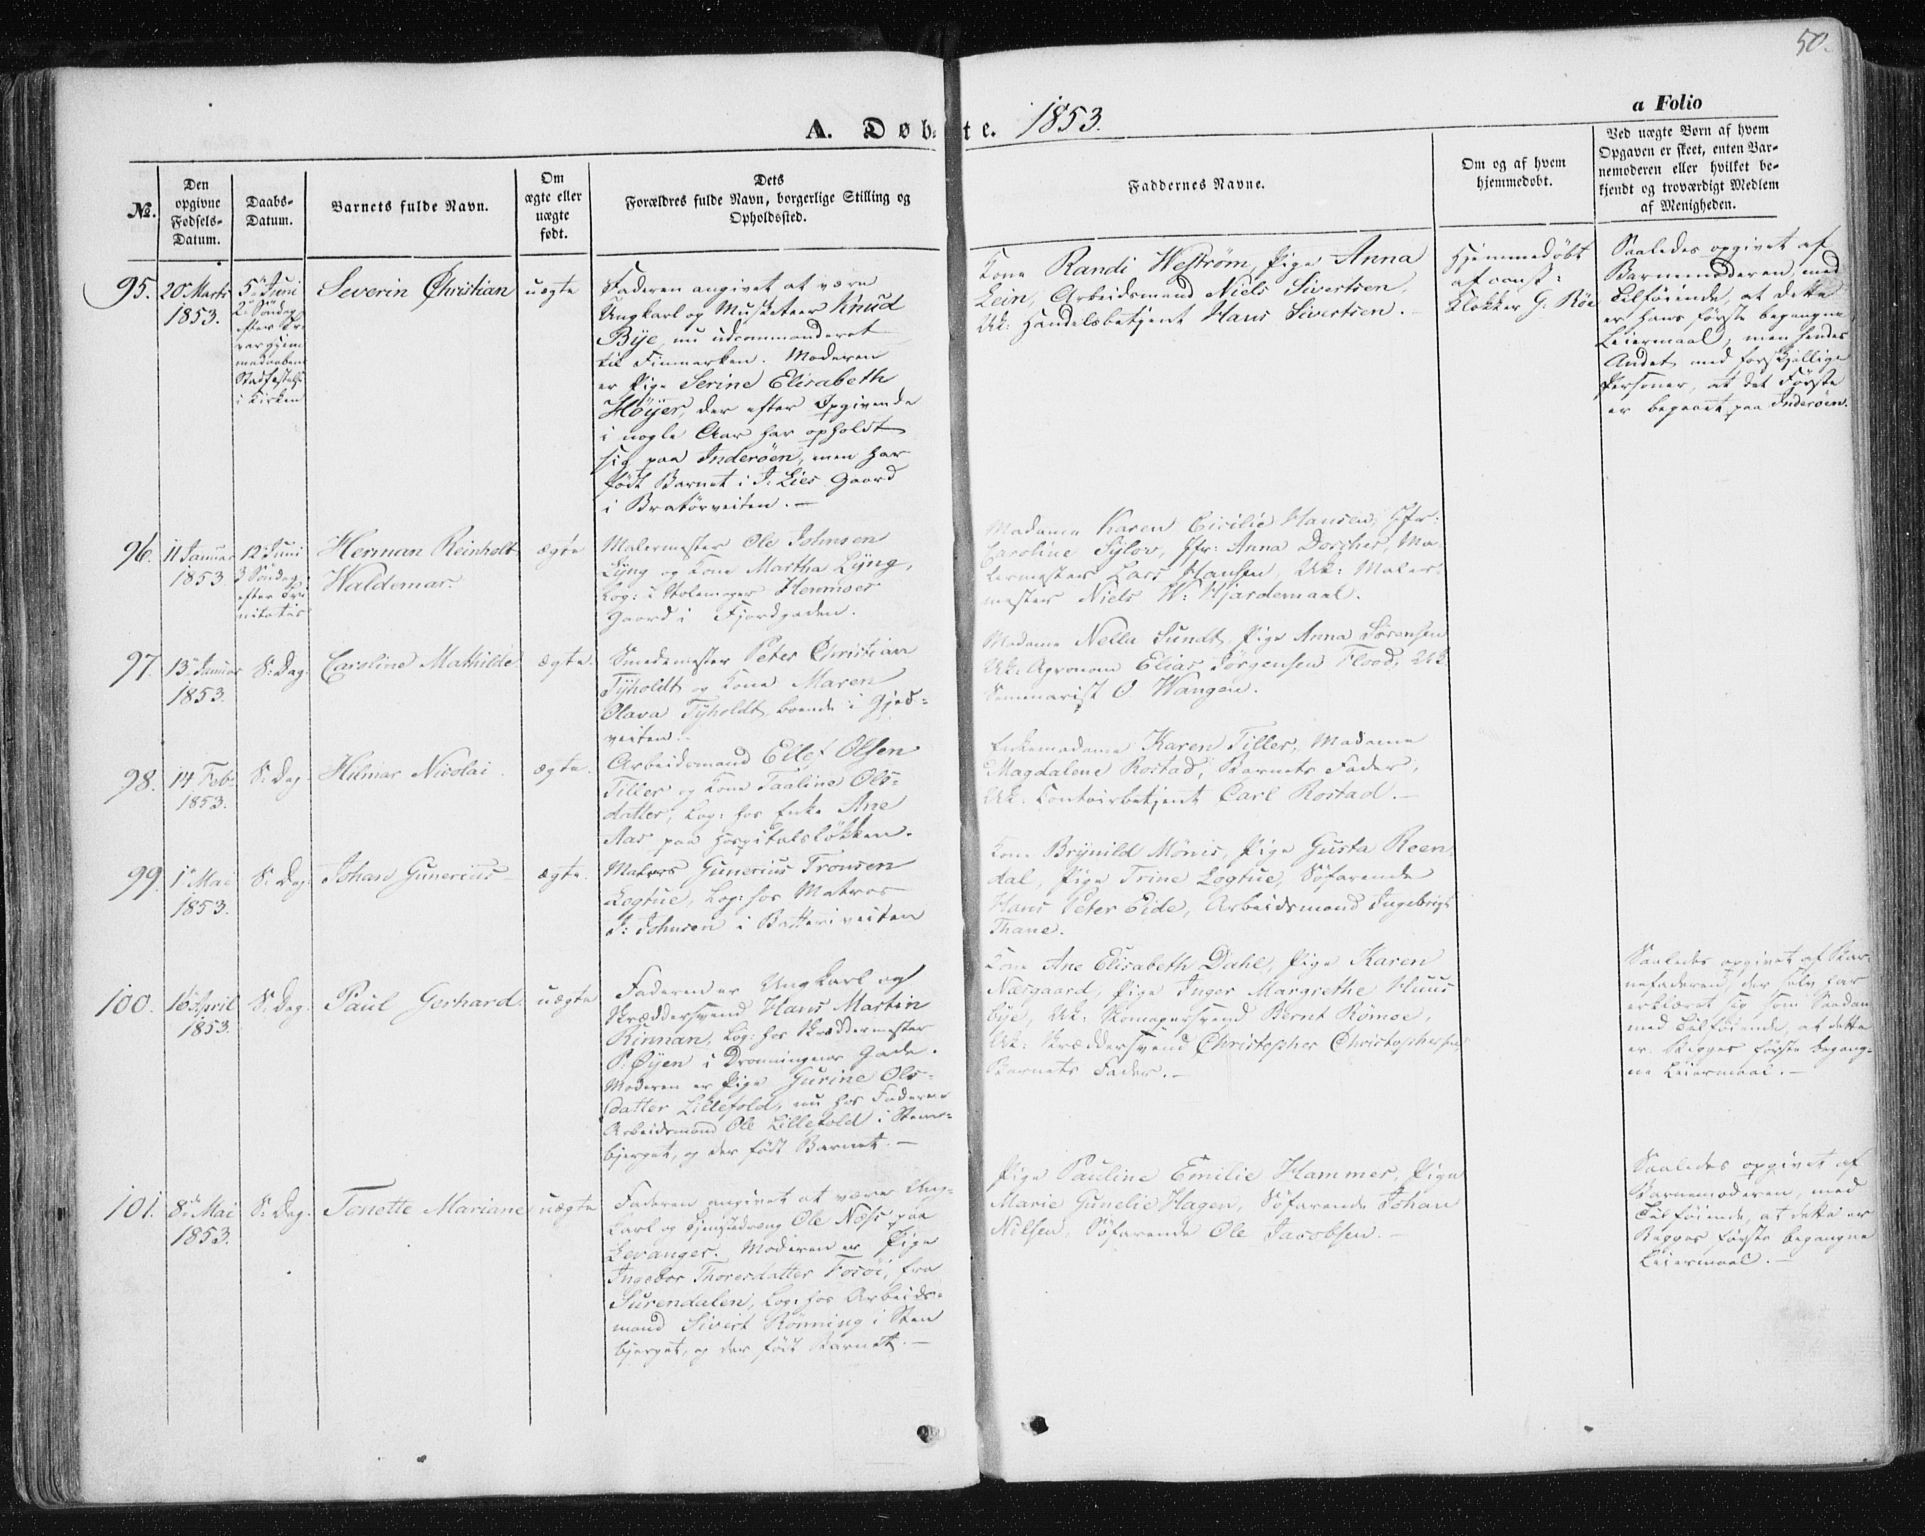 50.
a Folio
A. Døbte. 1853.
№.
Den opgivne Fødsels-Datum.
Daabs-Datum.
Barnets fulde Navn.
Om ægte eller uægte født.
Dets Forældres fulde Navn, borgerlige Stilling og Opholdssted.
Faddernes Navne.
Om og af hvem hjemmedøbt.
Ved uægte Børn af hvem Opgaven er skeet, enten Barnemoderen eller hvilket bekjendt og troværdigt Medlem af Menigheden.
95.
20de Marts
1853.
5te Juni
2. Søndag
efter Tr.
i Kirken
Severin Christian
uægte
Faderen angivet at være
Ungkarl og Musketeer Knud
Bÿe, nu udcommanderet
til Finmarken. Moderen
er Pige Serine Elisabeth
Höÿer, der efter Opgivende
i nogle Aar har opholdt
sig paa Inderöen, men har
födt Barnet i J: Lies Gaard
i Bratörveiten. —
Kone Randi Weström, Pige Anna
Lein, Arbeidsmand Niels Sivertsen,
Uk: Handelsbetjent Hans Sivertsen. —
Hjemmedøbt
af const:
Klokker G. Röe
Saaledes opgivet af
Barnemoderen, med
Tilföiende, at dette
er hans förste begangne
Leiermaal, men hendes
Andet med forskjellige
Personer, at det Første
er begaaet paa Inderöen.
96.
11 Januar
1853.
12 Juni
3 Søndag
efter Tri
nitatis
Herman Reinholt
Waldemar.
ægte
Malermester Ole Johnsen
Lÿng og Kone Martha Lÿng,
Log: i Stolemager Hemmoes
Gaard i Fjordgaden.
Madame Karen Cicilie Hansen, Jfr:
Caroline Sylow, Jfr: Anna Dorcher, Ma-
lermester Lars Hansen, Uk: Maler-
mester Niels W: Hjardemaal.
97.
13 Januar
1853.
S: Dag.
Caroline Mathilde
ægte.
Smedemester Peter Christian
Tÿholdt og Kone Maren
Olava Tÿholdt, boende i Gjed-
veiten.
Madame Nella Sundt, Pige Anna Sörensen
Uk: Agronom Elias Jörgensen Flood, Uk:
Seminarist O Wangen.
98.
14 Feb.
1853.
S: Dag
Hilmar Nicolai.
ægte.
Arbeidsmand Eilef Olsen
Tiller og Kone Paaline Ols-
datter, Log: hos Enke Ane
Aas paa Hospitalslökken.
Enkemadame Karen Tiller, Madame
Magdalene Rostad, Barnets Fader,
Uk. Contoirbetjent Carl Rostad. —
99.
1 Mai
1853.
S: Dag.
Johan Gunerius
ægte.
Matros Gunerius Tronsen
Logtue, Log: hos Matros
J: Johnsen i Batteriveiten
Kone Brÿnild Mönis, Pige Gusta Roen-
dal, Pige Trine Logtue, Söfarende
Hans Peter Eide, Arbeidsmand Ingebrigt
Thane.
100.
16 April
1853.
S: Dag.
Paul Gerhard
uægte
Faderen er Ungkarl og
Skræddersvend Hans Martin
Rinnan, Log: hos Skræddermester
P: Öÿen i Dronningens Gade.
Moderen er Pige Gurine Ols-
datter Lillefold, nu hos Faderen
Arbeidsmand Ole Lillefold i Steen-
bjerget, og der födt Barnet. —
Kone Ane Elisabeth Dahl, Pige Karen
Næsgaard, Pige Inger Margrethe Huus
bÿe, Uk: Skomagersvend Bernt Römoe,
Uk: Skræddersvend Christopher Christophersen,
Barnets Fader. —
Saaledes opgivet af Bar-
nefaderen, der selv har
erklæret sig som Saadan
med Tilföiende, at dette
er Begges förste begang-
ne Leiermaal. —
101.
8 Mai
1853.
S: Dag.
Tonette Mariane
uægte
Faderen angivet at være Ung-
karl og Tjenestedreng Ole Næss paa
Levanger. Moderen er Pige
Ingebor Thoresdatter, fra
Surendalen, Log: hos Arbeids-
mand Sivert Rönning i Steen
bjerget, og der födt Barnet. —
Pige Pauline Emilie Hammer, Pige
Marie Gunelie Hagen, Söfarende Johan
Nilsen, Söfarende Ole Jacobsen. —
Saaledes opgivet af
Barnemoderen, med
Tilföiende, at dette er
Begges förste begangne
Leiermaal. —